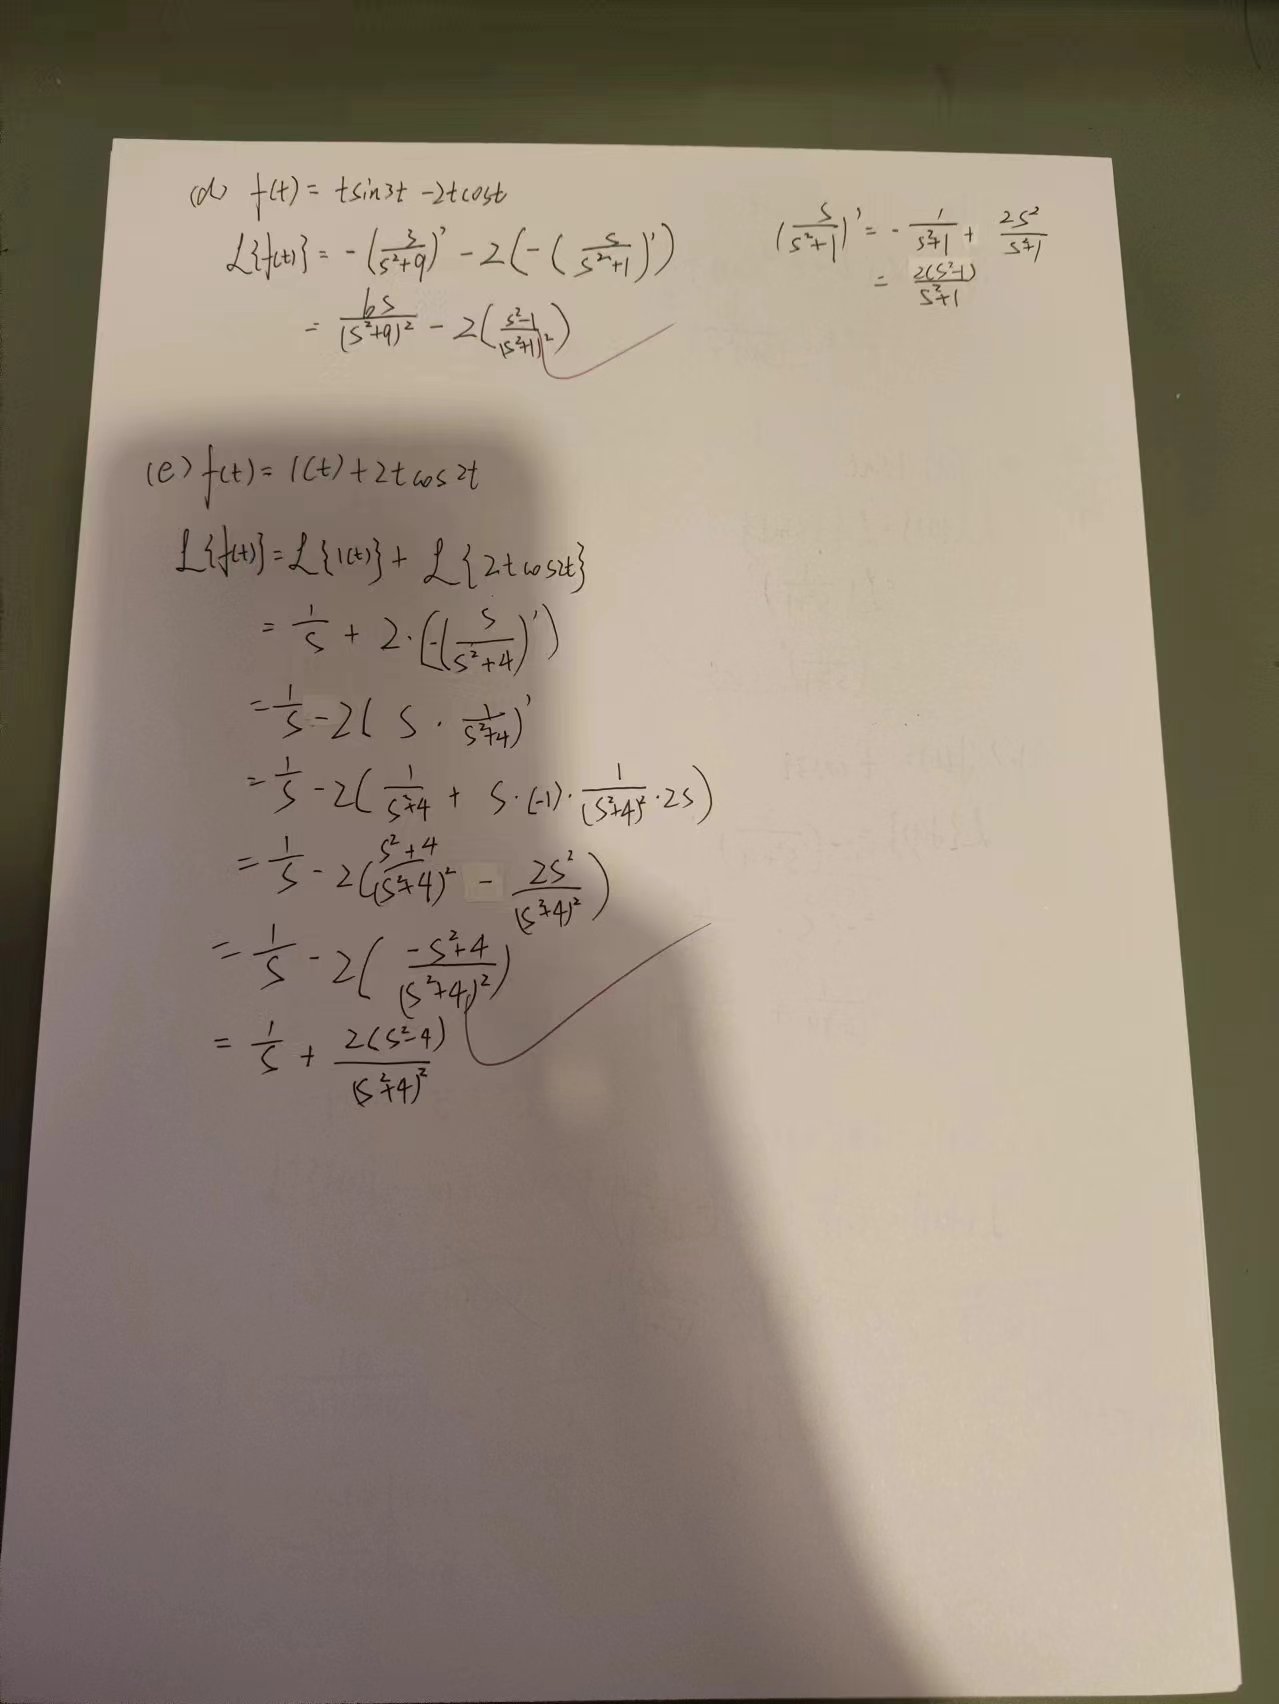 (d) f(t) = tsin3t - 2tcost
L{f(t)} = -(3/(s²+9))' - 2(-(s/(s²+1))')
= 6s/(s²+9)² - 2((s²-1)/(s²+1)²)
(s/(s²+1))' = -1/(s²+1) + 2s²/(s²+1)
= 2(s²-1)/(s²+1)
(e) f(t) = 1(t) + 2t cos 2t
L{f(t)} = L{1(t)} + L{2t cos2t}
= 1/s + 2·(-(s/(s²+4))')
= 1/s - 2(s · 1/(s²+4))'
= 1/s - 2(1/(s²+4) + s·(-1)·1/(s²+4)²·2s)
= 1/s - 2((s²+4)/(s²+4)² - 2s²/(s²+4)²)
= 1/s - 2((-s²+4)/(s²+4)²)
= 1/s + 2(s²-4)/(s²+4)²